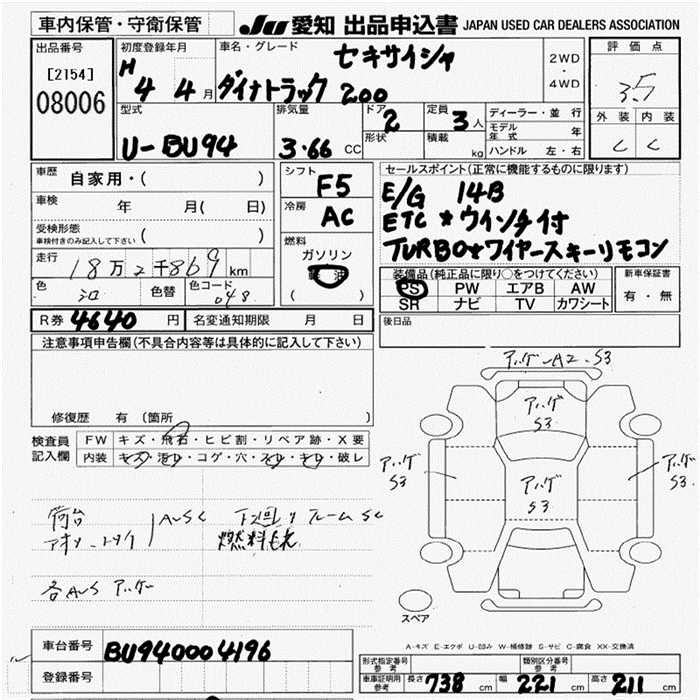 車内保管・守衛保管 JU 愛知 出品申込書 JAPAN USED CAR DEALERS ASSOCIATION
出品番号 初度登録年月 車名・グレード セキサイシャ 2WD ・ 4WD 評価点
[2154] 08006 H 4 4月 ダイナトラック 200 3.5
型式 排気量 ドア 2 定員 3人 ディーラー・並行 外装 内装
U-BU94 3.66 CC 形状 積載 kg モデル年式 年 C C
ハンドル 左・右
車歴 自家用・( ) シフト F5 セールスポイント(正常に機能するものに限ります)
車検 年 月( 日) 冷房 AC E/G 14B
受検形態 車検付きのみ記入して下さい ( ) ETC ★ウインチ付
燃料 ガソリン 軽油 ( ) TURBO★ワイヤースキーリモコン
走行 18万2千869km 装備品(純正品に限り○をつけてください) 新車保証書
色 色替 色コード 048 PS PW エアB AW 有・無
SR ナビ TV カワシート
R券 4640円 名変通知期限 月 日 後日品
注意事項申告欄(不具合内容等は具体的に記入して下さい)
修復歴 有(箇所 )
検査員記入欄 FW キズ・飛石・ヒビ割・リペア跡・X要
内装 キズ・汚れ・コゲ・穴・スレ・キレ・破レ
アハゲ A2 S3
アハゲ S3
アハゲ S3
アハゲ S3
アハゲ S3
荷台 AUSC 下廻り フレーム SC
各AUS アハゲ
スペア
A-キズ E-エクボ U-凹み W-補修跡 S-サビ C-腐食 XX-交換済
車台番号 BU9400004196
登録番号
形式指定番号 参考 類別区分番号 参考
車庫証明用 参考 長さ 738 cm 幅 221 cm 高さ 211 cm